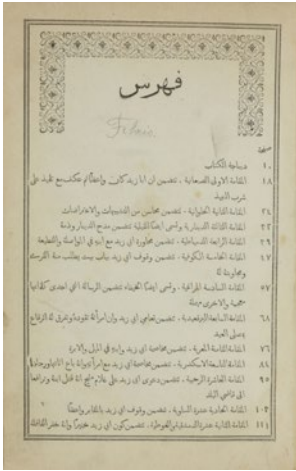 فهرس
صفحة
١٠ ديباجة الكتاب
١٨ المقامة الاولى الصنعانية . تتضمن ان ابا زيد كان واعظًا ثم عكف مع تلميذ على
شرب النبيذ
٢٤ المقامة الثانية الحلوانية . تتضمن محاسن من التشبيهات والاعتراضات
المقامة الثالثة الدينارية وتسمى ايضًا القيلية تتضمن مدح الدينار وذمهُ
٢٩ المقامة الرابعة الدمياطية . تتضمن محاورة ابي زيد مع ابنهِ في المواصلة والقطيعة
٤٧ المقامة الخامسة الكوفية . تتضمن وقوف ابي زيد بباب بيت يطلب منهُ القرى
ومجاوبتهُ لهُ
٥٧ المقامة السادسة المراغية . وتسمى ايضًا الخيفاء تتضمن الرسالة التي احدى كلماتها
معجمة والاخرى مهملة
٦٨ المقامة السابعة البرقعيدية . تتضمن تعامي ابي زيد وان امرأة تقوده وتفرق لهُ الرقاع
في مصلى العيد
٧٦ المقامة الثامنة المعرية . تتضمن مخاصمة ابي زيد وابنهِ في الميل والابرة
٨٤ المقامة التاسعة الاسكندرية . تتضمن مخاصمة ابي زيد مع امرأتهِ
٩٥ المقامة العاشرة الرحبية . تتضمن دعوى ابي زيد على غلام مليح انهُ قتل ابنهُ وترافعا
الى قاضي البلد
١٠٤ المقامة الحادية عشرة الساوية . تتضمن وقوف ابي زيد بالمقابر واعظًا
١١١ المقامة الثانية عشرة الدمشقية والغوطية . تتضمن كون ابي زيد خفيرًا وانهُ خفر القافلة